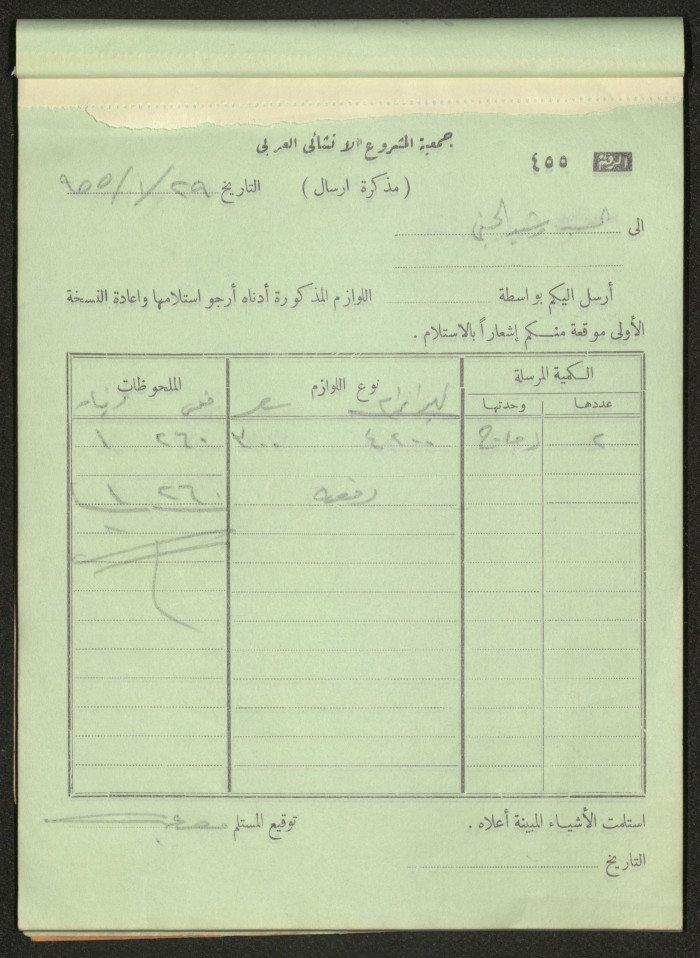 جمعية المشروع الانشائى العربى
الرقم ٤٥٥
( مذكرة ارسال )
التاريخ ٢٩ / ١ / ٩٥٥
الى السيد رشيد
أرسل اليكم بواسطة اللوازم المذكورة أدناه أرجو استلامها واعادة النسخة
الأولى موقعة منكم إشعاراً بالاستلام .
الكمية المرسلة نوع اللوازم الملحوظات
عددها وحدتها سعر فلس دينار
٢ دجاج ٤٢٠٠ ٣٠٠ ٢٦٠ ١
٢٦٠ ١
استلمت الأشياء المبينة أعلاه .
توقيع المستلم
التاريخ